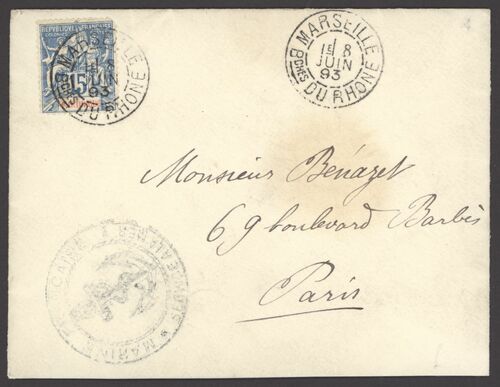 RÉPUBLIQUE FRANÇAISE
COLONIES
15
MARSEILLE
JUIN
93
BCHES DU RHONE
MARSEILLE
1E 8
JUIN
93
BCHES DU RHONE
Monsieur Bénazet
69 boulevard Barbès
Paris
MARINE